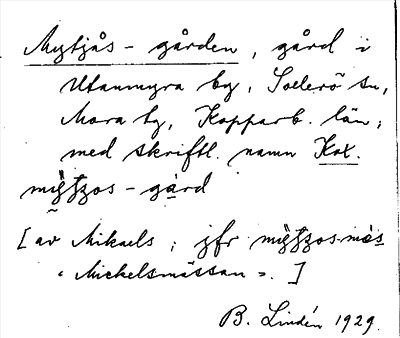 Mytjås-gården, gård i
Utanmyra by, Sollerö sn,
Mora tg, Kopparb. län;
med skriftl. namn Kox.
-gård
[av Mikaels; jfr
"Mickelsmässan".]
B. Lindén 1929.